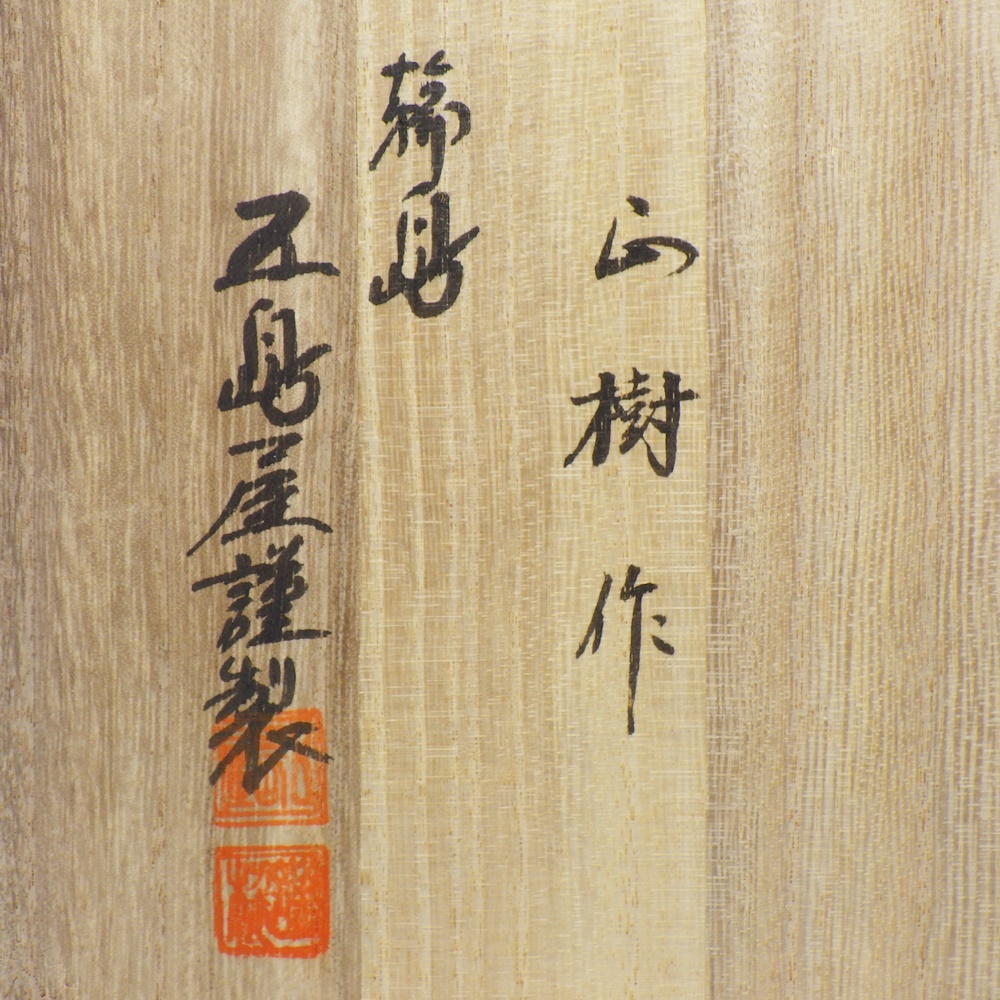 山樹作
輪島
五島屋謹製